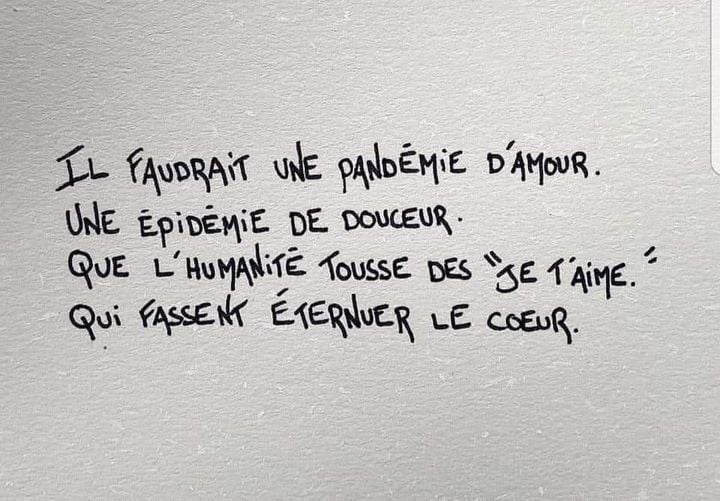 IL FAUDRAIT UNE PANDÉMIE D'AMOUR.
UNE ÉPIDÉMIE DE DOUCEUR.
QUE L'HUMANITÉ TOUSSE DES "JE T'AIME."
QUI FASSENT ÉTERNUER LE COEUR.